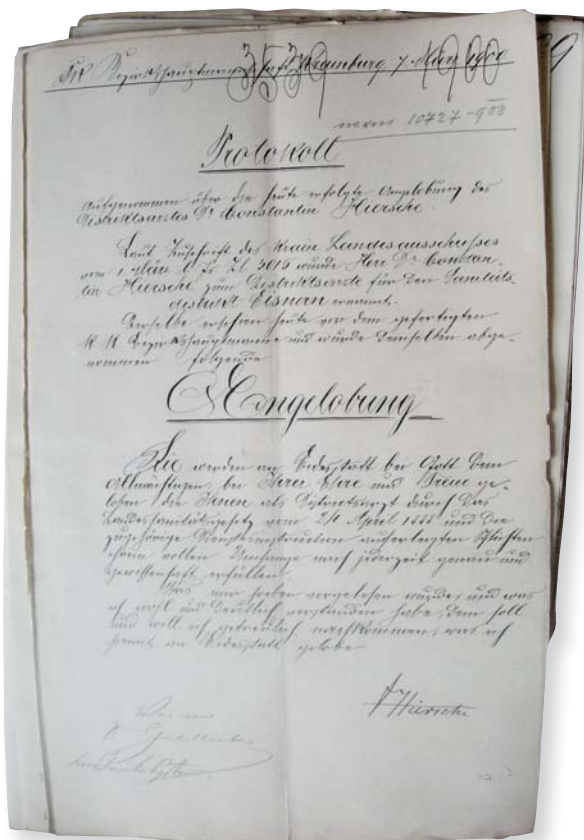 KK Bezirkshauptmannschaft Krainburg, 7. März 1900
3539
10727-900
Protokoll
aufgenommen über die heute erfolgte Angelobung des
Distriktsarztes Dr Constantin Hiersche.
Laut Zuschrift des Krain. Landesausschusses
vom 1. März l. Js. Zl 2015 wurde Herr Dr Constan-
tin Hiersche zum Distriktsarzte für den Sanitäts-
distrikt Eisnern ernannt.
Derselbe erschien heute vor dem gefertigten
KK Bezirkshauptmanne und wurde demselben abge-
nommen folgende
Angelobung
Sie werden an Eidesstatt bei Gott dem
Allmächtigen, bei Ihrer Ehre und Treue ge-
loben die Ihnen als Distriktsarzt durch das
Landessanitätsgesetz vom 24 April 1888 und die
zugehörige Dienstinstruction auferlegten Pflichten
ihrem vollen Umfange nach jederzeit genau und
gewissenhaft erfüllen.
Was mir soeben vorgelesen wurde, und was
ich wohl und deutlich verstanden habe, dem soll
und will ich getreulich nachkommen, was ich
hiemit an Eidesstatt gelobe
Hiersche